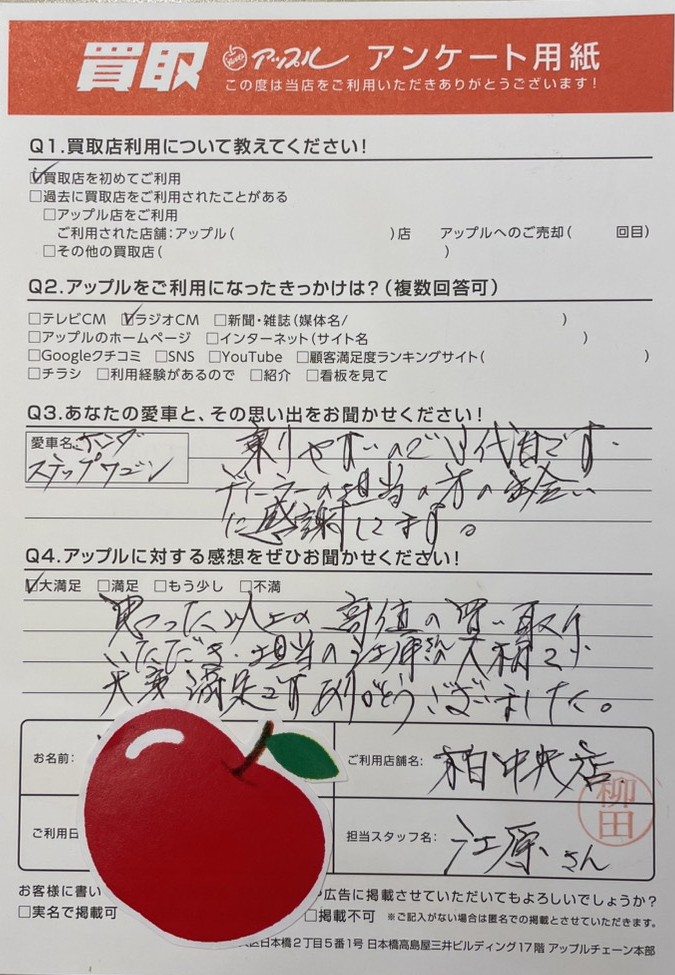 買取 アップル アンケート用紙
この度は当店をご利用いただきありがとうございます!
Q1.買取店利用について教えてください!
☑買取店を初めてご利用
□過去に買取店をご利用されたことがある
□アップル店をご利用
ご利用された店舗:アップル( )店 アップルへのご売却( 回目)
□その他の買取店( )
Q2.アップルをご利用になったきっかけは?(複数回答可)
□テレビCM ☑ラジオCM □新聞・雑誌(媒体名/ )
□アップルのホームページ □インターネット(サイト名 )
□Googleクチコミ □SNS □YouTube □顧客満足度ランキングサイト( )
□チラシ □利用経験があるので □紹介 □看板を見て
Q3.あなたの愛車と、その思い出をお聞かせください!
愛車名:ホンダ
ステップワゴン
乗りやすいので 代目です。
ディーラーの担当の方の出会い
に感謝してます。
Q4.アップルに対する感想をぜひお聞かせください!
☑大満足 □満足 □もう少し □不満
思った以上の高値の買い取り
いただき、担当の江原さんの人柄で
大変満足です ありがとうございました。
お名前:
ご利用店舗名: 柏中央店
柳田
ご利用日
担当スタッフ名: 江原さん
お客様に書い 広告に掲載させていただいてもよろしいでしょうか?
□実名で掲載可 □掲載不可 ※ご記入がない場合は匿名での掲載とさせていただきます。
区日本橋2丁目5番1号 日本橋高島屋三井ビルディング17階 アップルチェーン本部